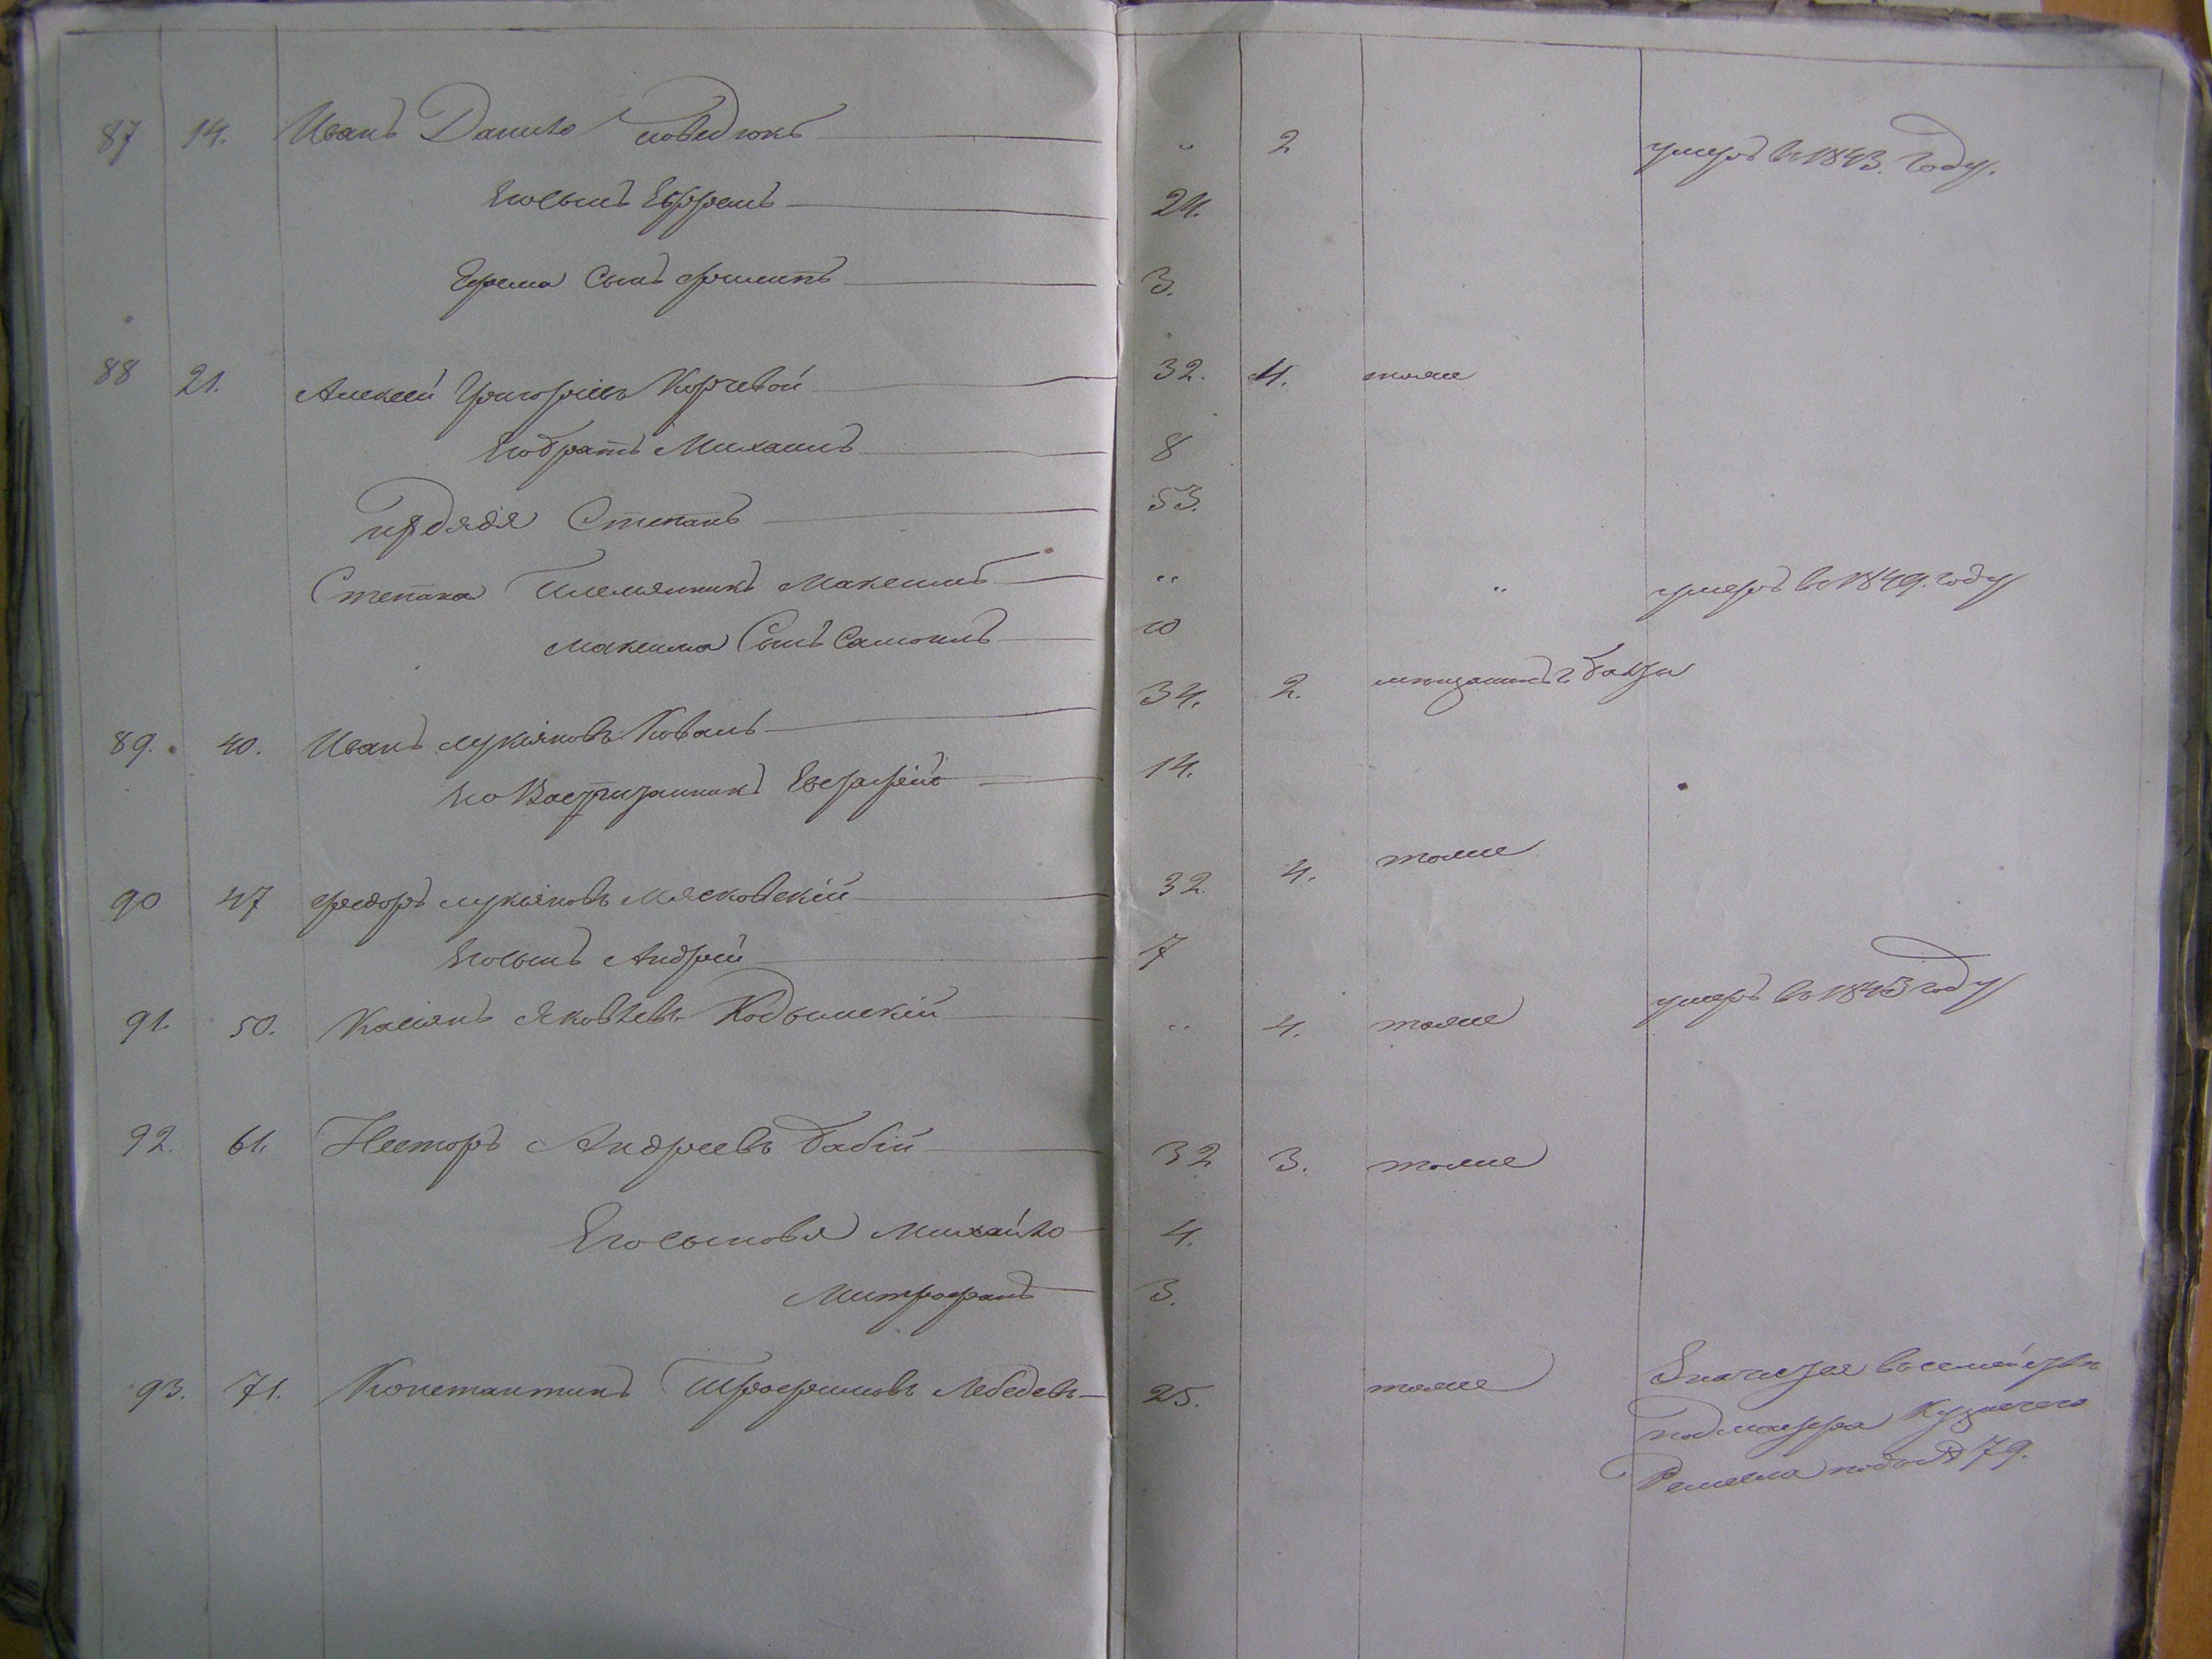 87 14. Иванъ Данило 2 умеръ въ 1843. году.
Его сынъ Ефремъ 24.
Ефрема Сынъ Филипъ 3.
88 21. Алексѣй Григорьевъ Корчевой 32. 4. тоже
Его братъ Михаилъ 8
Ихъ дядя Степанъ 53.
Степана Племянникъ Максимъ " " умеръ въ 1849. году
Максима Сынъ Самоилъ 10
89. 40. Иванъ Лукіяновъ Коваль 34. 2. мѣщанинъ г. Балты
Его Воспитанникъ Евграфій 14.
90 47 Федоръ Лукьяновъ Мясковскій 32. 4. тоже
Его сынъ Андрей 7
91. 50. Касіянъ Яковлевъ Кодымскій " 4. тоже умеръ въ 1843 году
92. 61. Несторъ Андреевъ Бабій 32 3. тоже
Его сыновья Михайло 4.
Митрофанъ 3.
93. 71. Константинъ Трофимовъ Лебедевъ 25. тоже Значится въ семействѣ
Кузнечего
Ремесла подъ № 79.